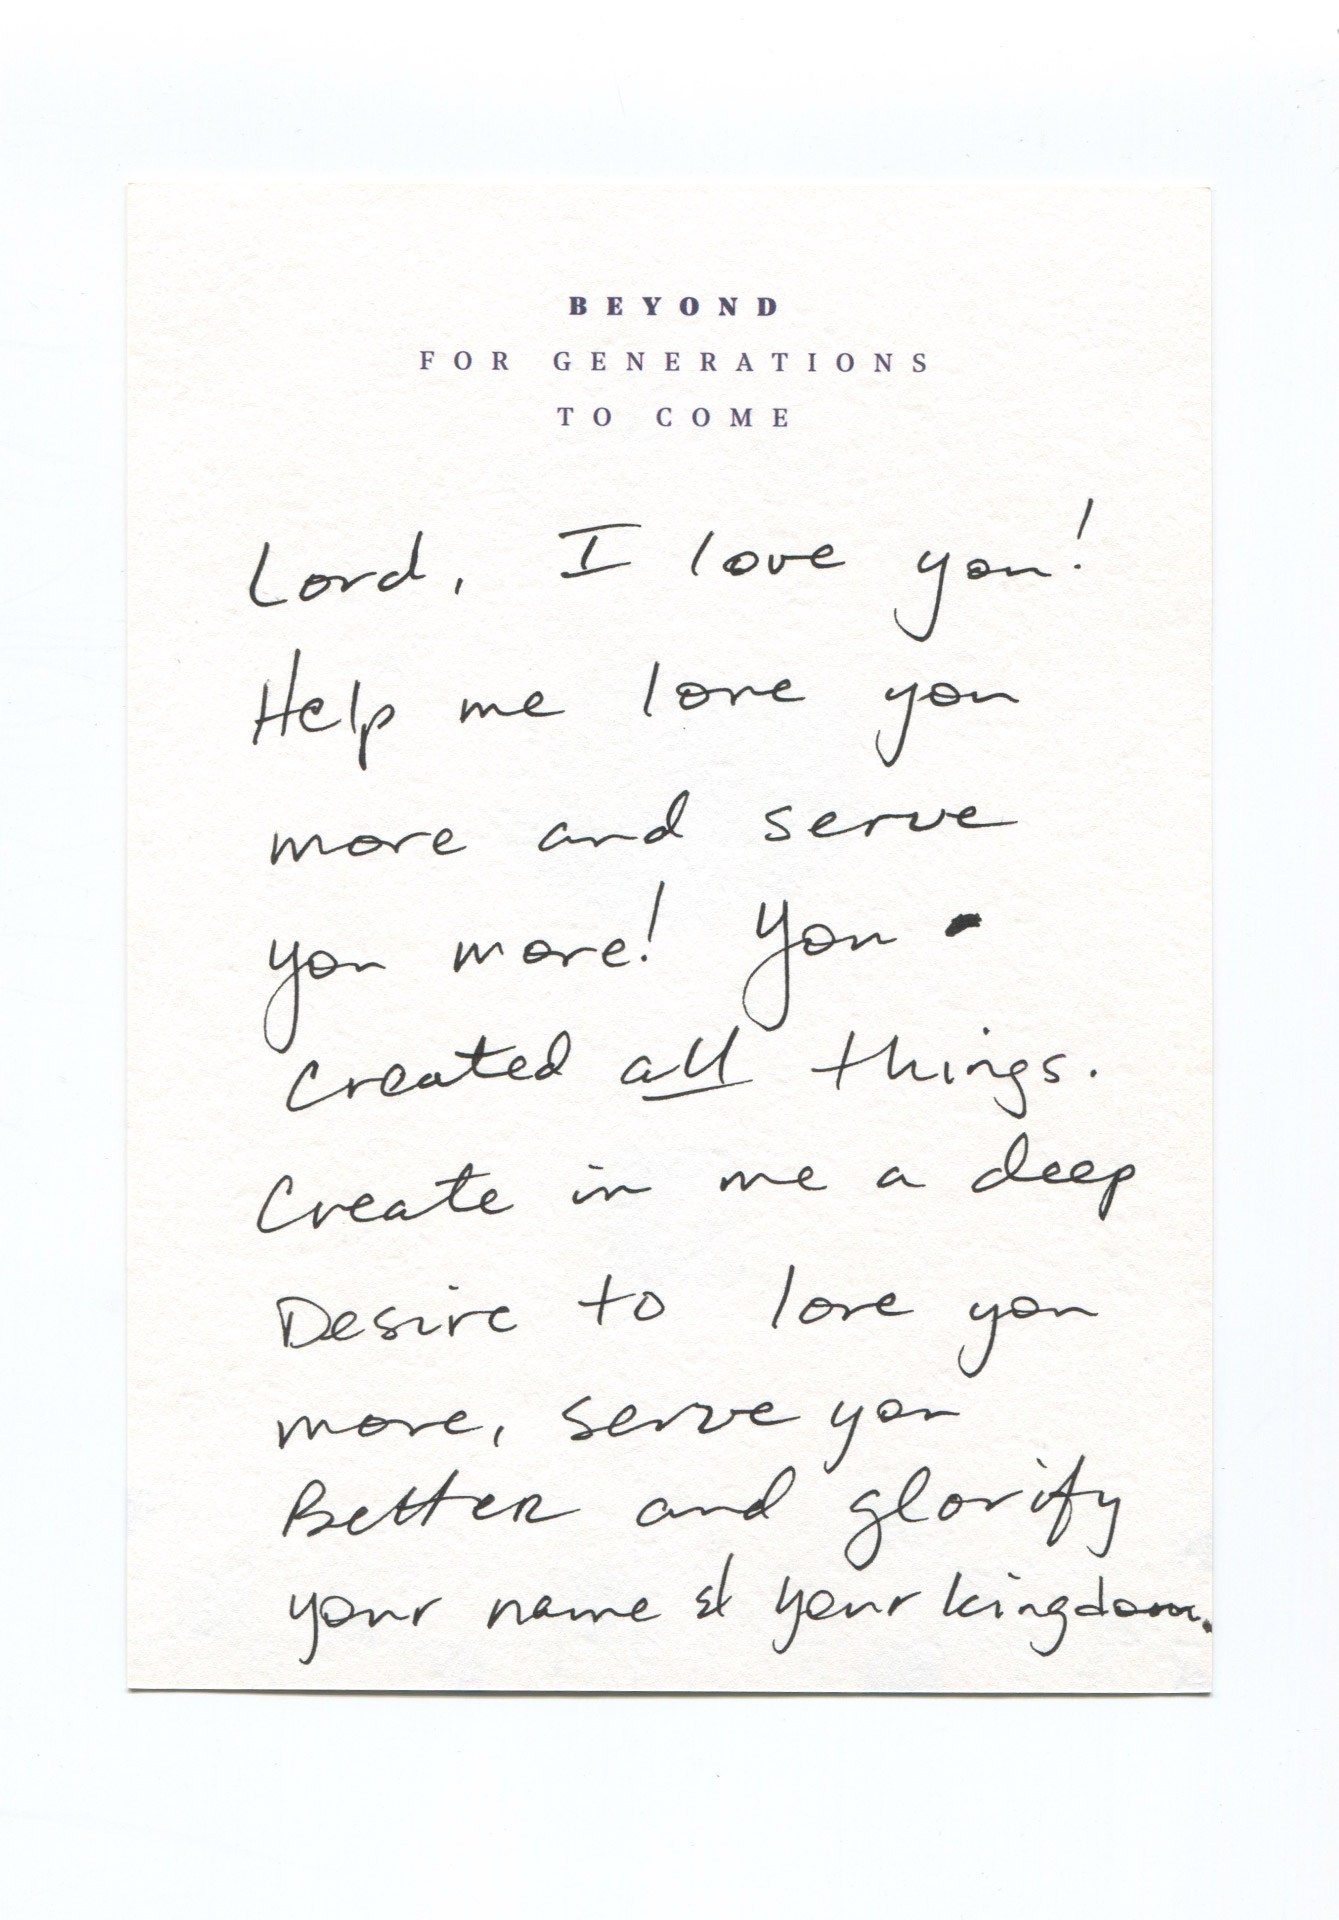 BEYOND
FOR GENERATIONS
TO COME
Lord, I love you!
Help me love you
more and serve
you more! You
Created all things.
Create in me a deep
Desire to love you
more, serve you
Better and glorify
your name & your kingdom.